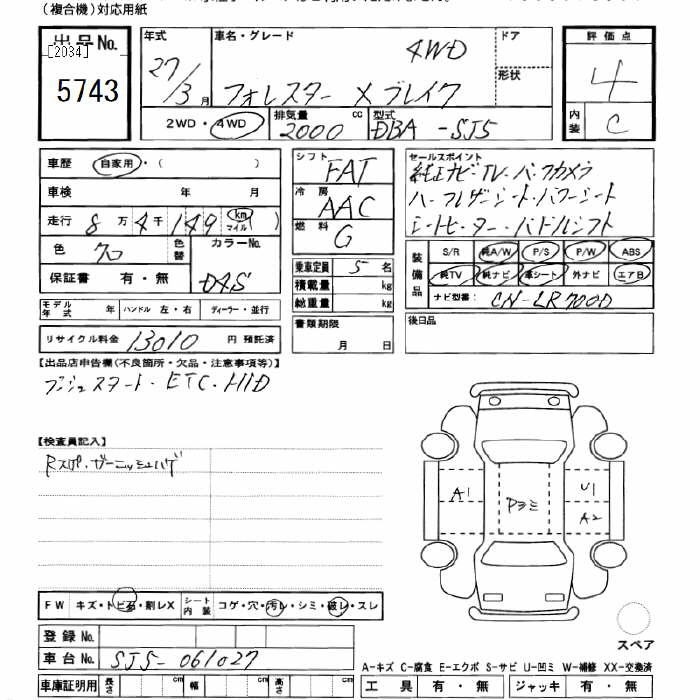 (複合機)対応用紙
出品No.
[2034]
5743
年式
27/3月
車名・グレード
4WD
フォレスター Xブレイク
ドア
形状
2WD・4WD
排気量 2000 cc
型式 DBA-SJ5
評価点
4
内装
C
車歴 自家用・( )
車検 年 月
走行 8万4千149 (km マイル)
色 クロ 色替
カラーNo.
D4S
保証書 有・無
モデル年式 年 ハンドル 左・右 ディーラー・並行
リサイクル料金 13010 円 預託済
シフト FAT
冷房 AAC
燃料 G
乗車定員 5 名
積載量 kg
総重量 kg
書類期限
月 日
セールスポイント
純正ナビ・TV・バックカメラ
ハーフレザーシート・パワーシート
シートヒーター・パドルシフト
装備品
S/R 純A/W P/S P/W ABS
純TV 純ナビ 革シート 外ナビ エアB
ナビ型番: CN-LR700D
後日品
【出品店申告欄(不良箇所・欠品・注意事項等)】
プッシュスタート・ETC・HID
【検査員記入】
Rスポ・ガーニッシュハゲ
A1
Pヨミ
U1
A2
FW キズ・トビ石・割レX シート内装 コゲ・穴・汚レ・シミ・破レ・スレ
登録No.
車台No. SJ5-061027
車庫証明用 長さ cm 幅 cm 高さ cm
スペア
A-キズ C-腐食 E-エクボ S-サビ U-凹ミ W-補修 XX-交換済
工具 有・無 ジャッキ 有・無